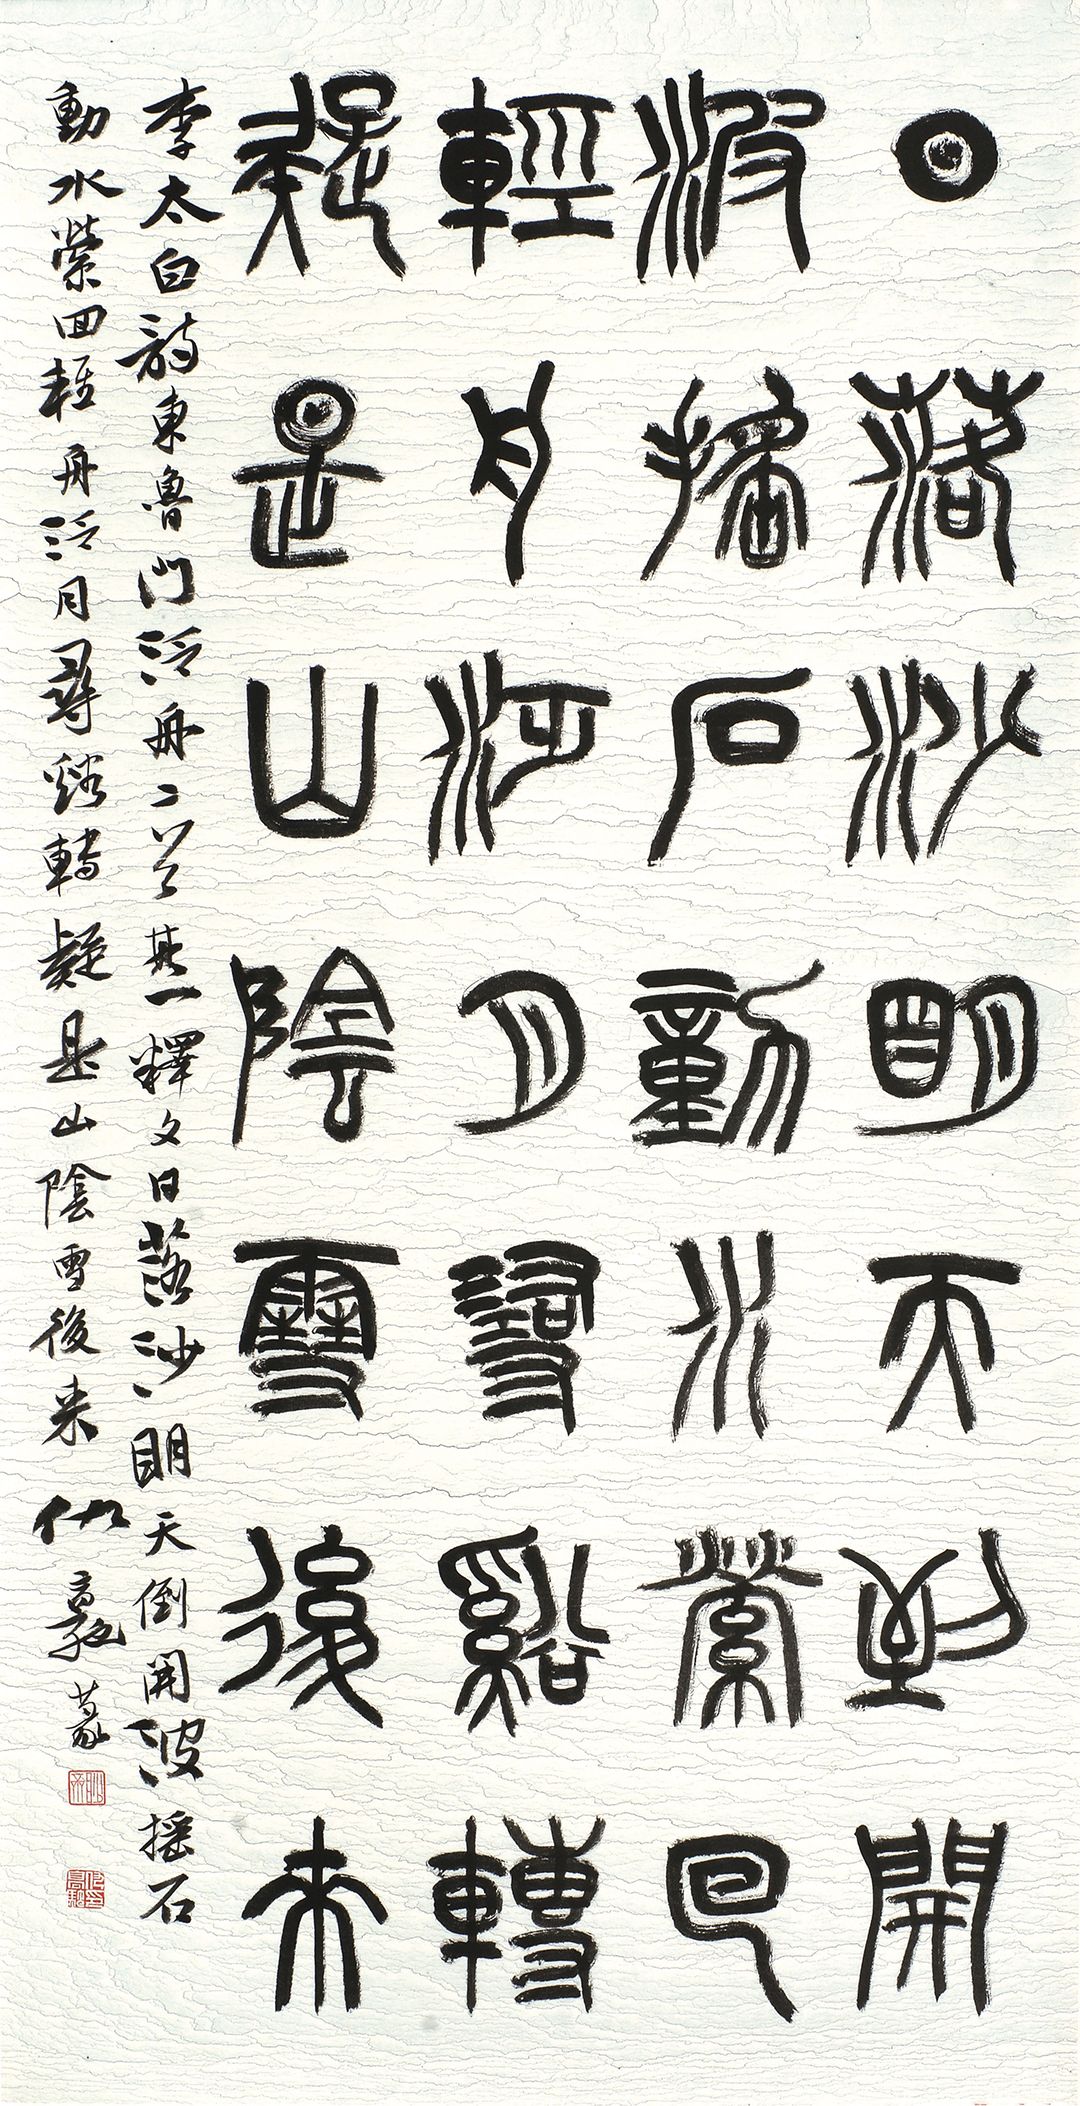 日落沙明天倒開
波搖石動水縈回
輕舟泛月尋谿轉
疑是山陰雪後來
李太白詩東魯門泛舟二首其一釋文日落沙明天倒開波摇石
動水縈回輕舟泛月尋谿轉疑是山陰雪後来 仇